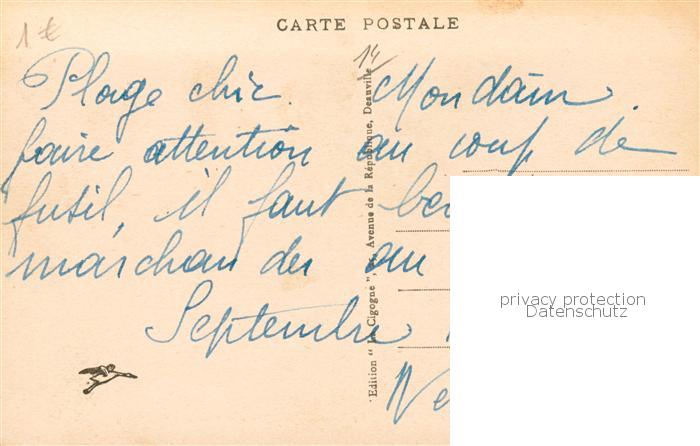 1 €
CARTE POSTALE
14
Plage chic. Mondain.
faire attention au coup de
fusil, il faut
marchander au
Septembre
Edition " La Cigogne ", Avenue de la République, Deauville
privacy protection
Datenschutz